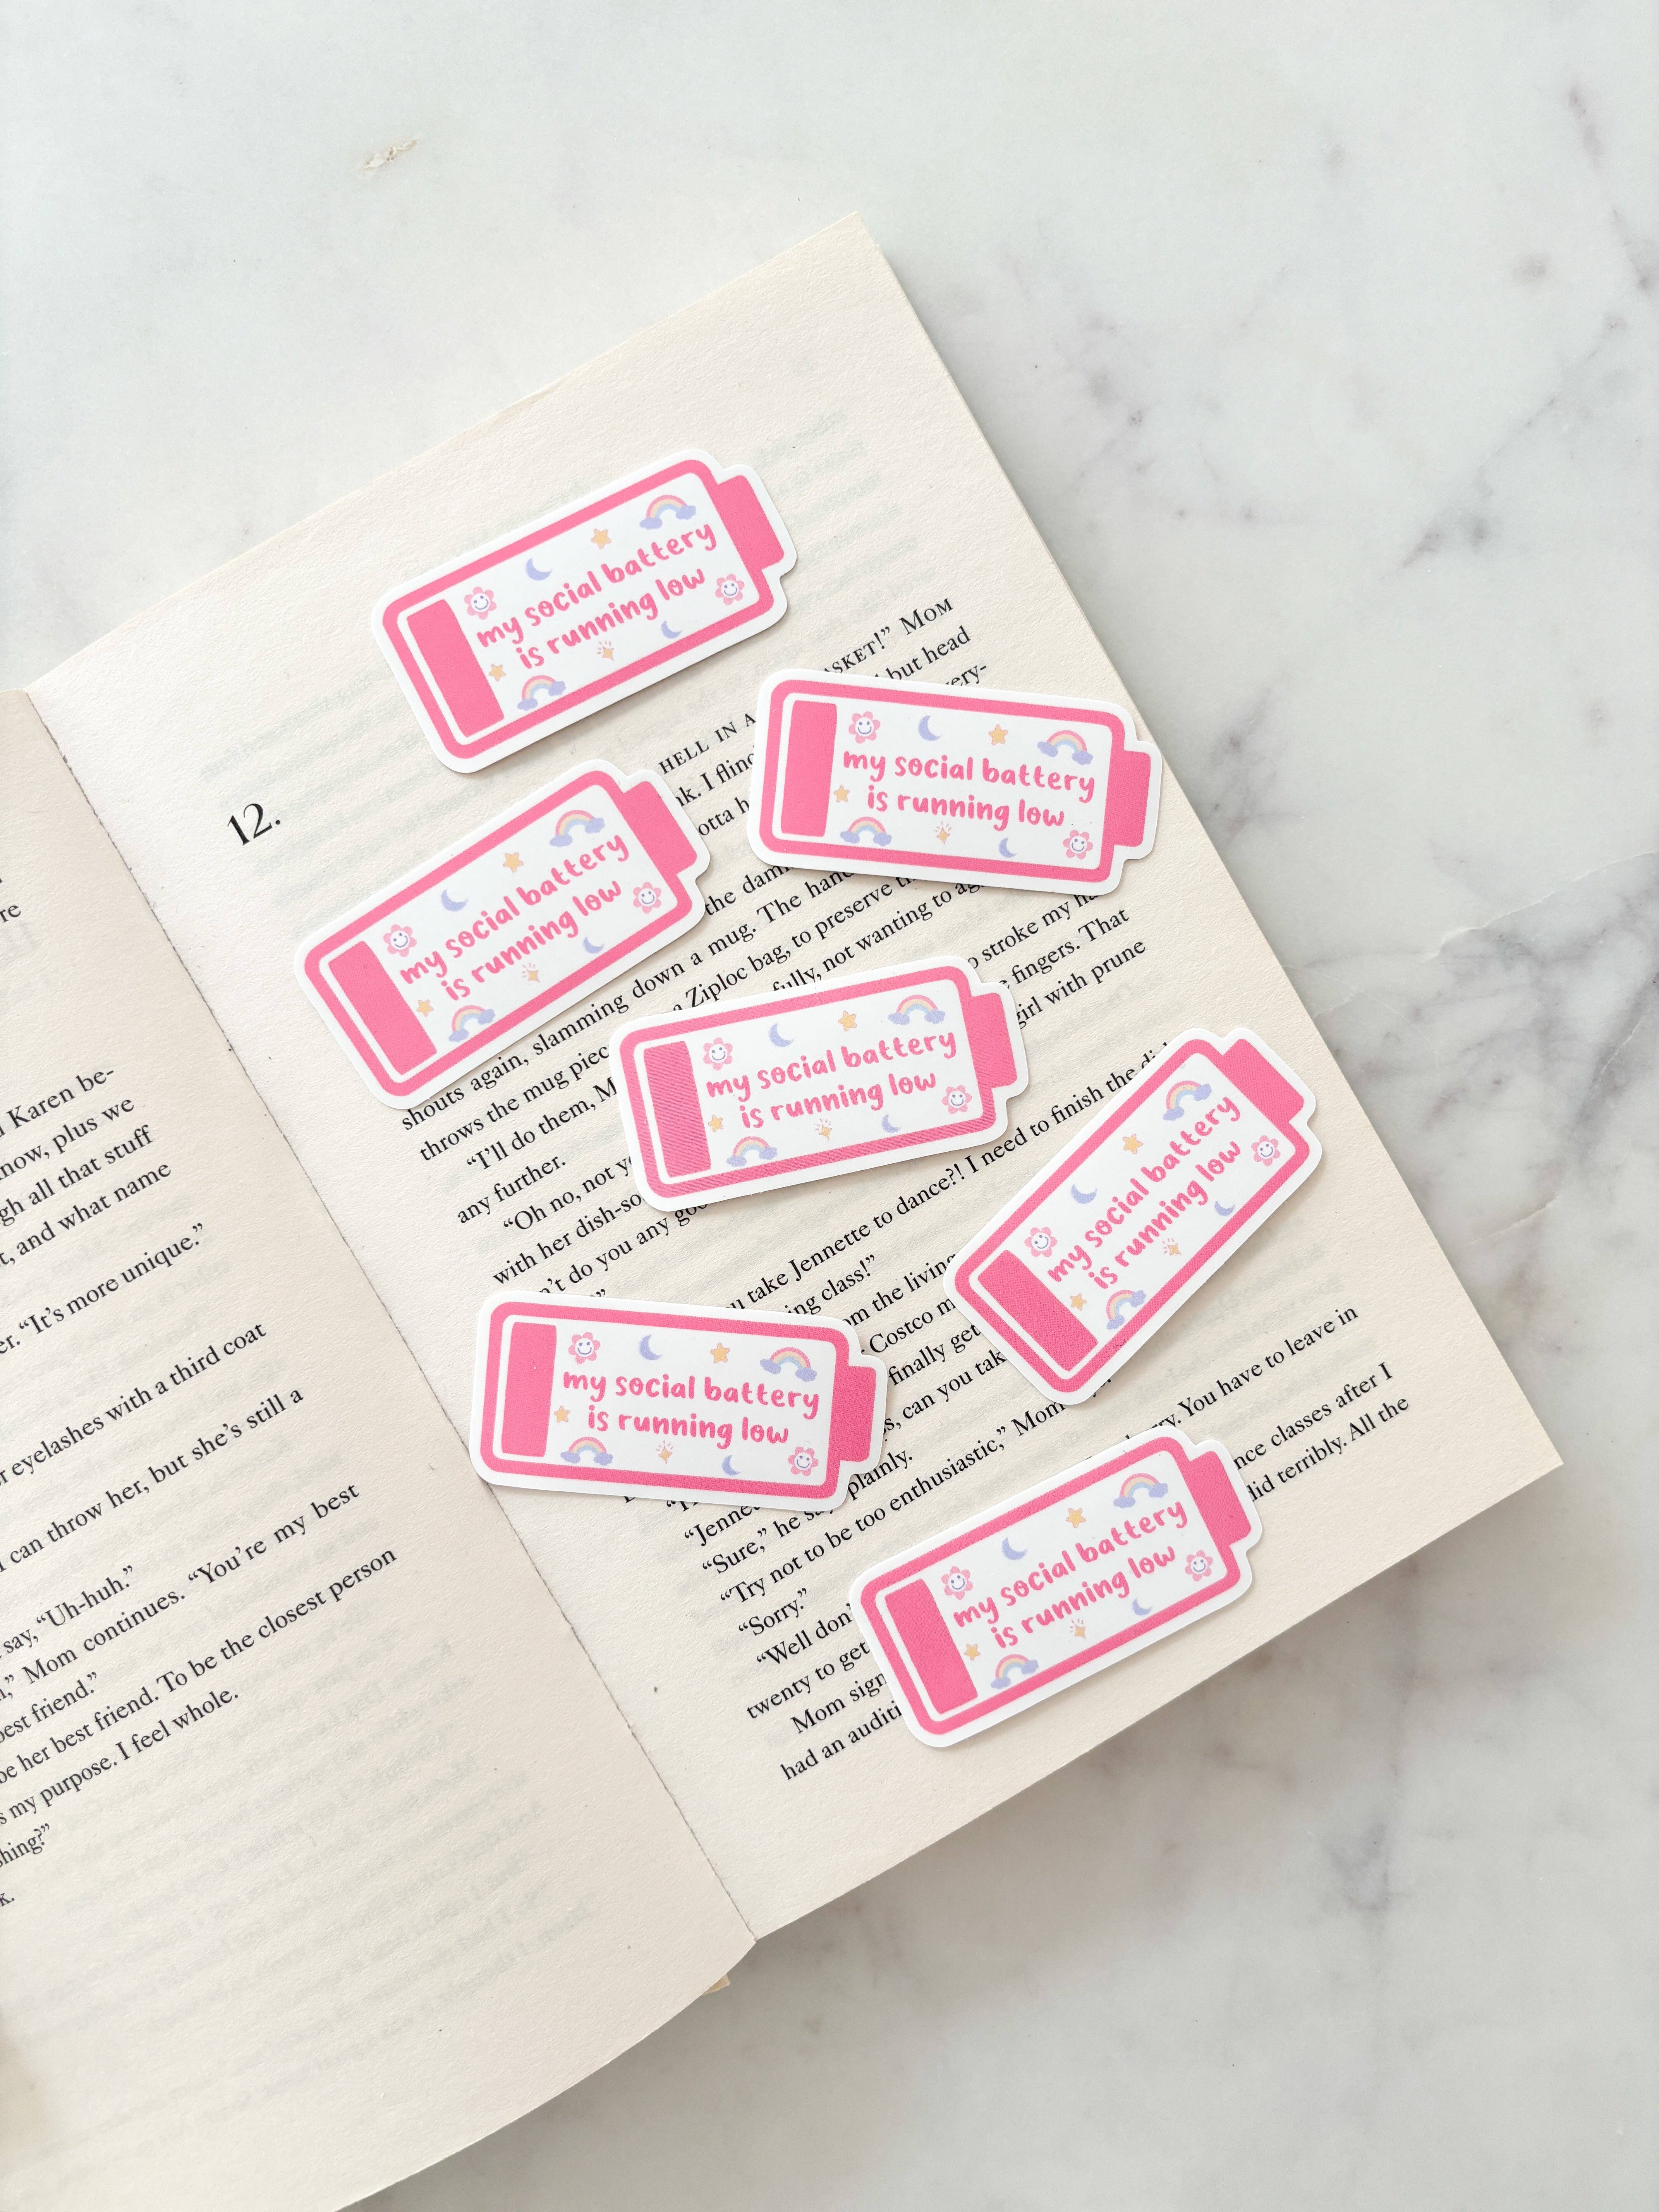 re
Karen be-
now, plus we
gh all that stuff
t, and what name
er. “It’s more unique.”
eyelashes with a third coat
can throw her, but she’s still a
say, “Uh-huh.”
Mom continues. “You’re my best
best friend.”
be her best friend. To be the closest person
s my purpose. I feel whole.
hing?”
k.
12.
HELL IN A
ASKET!” MOM
nk. I flinc
but head
otta h
very-
the dam
shouts again, slamming down a mug. The han
throws the mug piec
a Ziploc bag, to preserve t
“I’ll do them, M
fully, not wanting to ag
any further.
“Oh no, not y
o stroke my ha
with her dish-so
fingers. That
n’t do you any go
girl with prune
u take Jennette to dance?! I need to finish the di
ing class!”
om the living
Costco m
finally get
s, can you tak
“Jenne
plainly.
“Sure,” he sa
“Try not to be too enthusiastic,” Mom
“Sorry.”
“Well don’
ry. You have to leave in
twenty to get
Mom sig
nce classes after I
had an auditi
did terribly. All the
my social battery
is running low
my social battery
is running low
my social battery
is running low
my social battery
is running low
my social battery
is running low
my social battery
is running low
my social battery
is running low